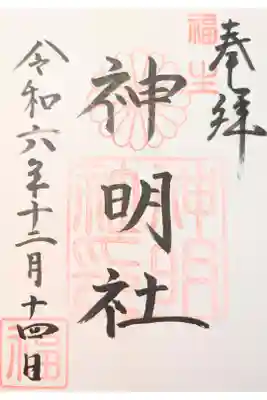 奉拝
福生
神明社
令和六年十二月十四日
福